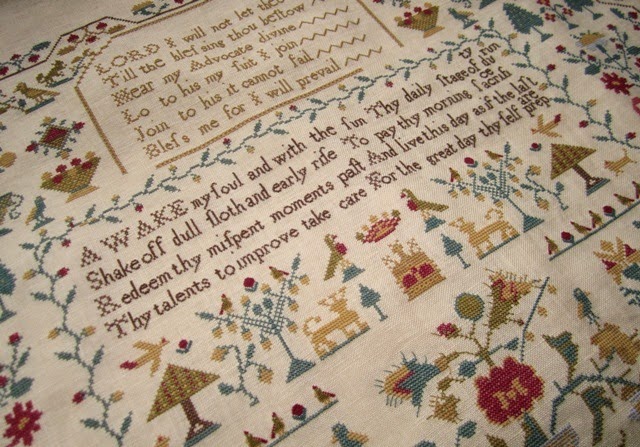 LORD I will not let thee
Till the bleſsing thou beſtow
Hear my Advocate divine
Lo to his my ſut I join
Join to his it cannot fail
Bleſs me for I will prevail
AWAKE my ſoul and with the ſun Thy daily ſtage of du ty run
Shake off dull ſloth and early riſe To pay thy morning ſacrifi ce
Redeem thy miſpent moments paſt And live this day as if the laſt
Thy talents to improve take care For the great day thy ſelf prep are
M